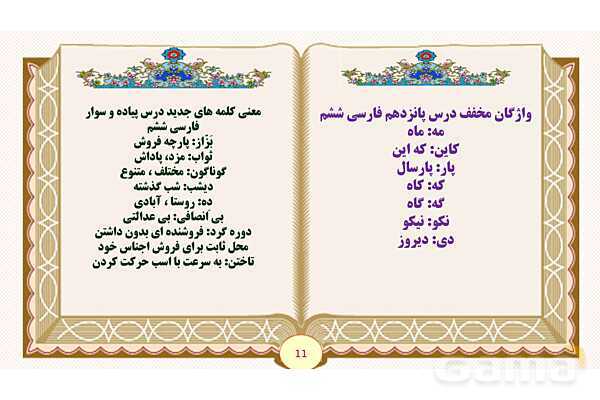 واژگان مخفف درس پانزدهم فارسی ششم
مه: ماه
کاین: که این
پار: پارسال
که: کاه
گه: گاه
نکو: نیکو
دی: دیروز
معنی کلمه های جدید درس پیاده و سوار
فارسی ششم
بَزّاز: پارچه فروش
ثواب: مزد، پاداش
گوناگون: مختلف ، متنوع
دیشب: شب گذشته
ده: روستا ، آبادی
بی انصافی: بی عدالتی
دوره گرد: فروشنده ای بدون داشتن
محل ثابت برای فروش اجناس خود
تاختن: به سرعت با اسب حرکت کردن
11
Gama